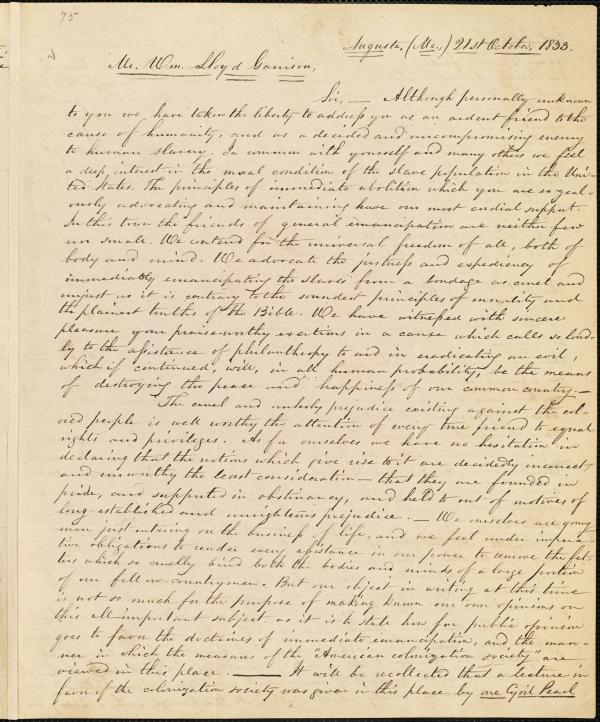 75
Augusta, (Me.,) 21st October, 1833.
Mr. Wm. Lloyd Garrison,
Sir, — Although personally unknown
to you we have taken the liberty to address you as an ardent friend to the
cause of humanity, and as a decided and uncompromising enemy
to human slavery. In common with yourself and many others we feel
a deep interest in the moral condition of the slave population in the Uni-
ted States. The principles of immediate abolition which you are so zeal-
ously advocating and maintaining have our most cordial support.
In this town the friends of general emancipation are neither few
nor small. We contend for the universal freedom of all, both of
body and mind. We advocate the justness and expediency of
immediately emancipating the slaves from a bondage as cruel and
unjust as it is contrary to the soundest principles of morality and
the plainest truths of the Bible. We have witnessed with sincere
pleasure your praise-worthy exertions in a cause which calls so loud-
ly to the assistance of philanthropy to aid in eradicating an evil,
which if continued, will, in all human probability, be the means
of destroying the peace and happiness of our common country. —
The cruel and unholy prejudice existing against the col-
ored people is well worthy the attention of every true friend to equal
rights and privileges. As for ourselves we have no hesitation in
declaring that the notions which give rise to it are decidedly incorrect,
and unworthy the least consideration — that they are founded in
pride, and supported in obstinancy, and held to out of motives of
long established and unrighteous prejudice. — We ourselves are young
men just entering on the business of life, and we feel under impera-
tive obligations to render every assistance in our power to remove the fet-
ters which so cruelly bind both the bodies and minds of a large portion
of our fellow-countrymen. But our object in writing at this time
is not so much for the purpose of making known our own opinions on
this all-important subject as it is to state how far public opinion
goes to favor the doctrines of immediate emancipation, and the man-
ner in which the measures of the "American colonization society" are
viewed in this place. —— It will be recollected that a lecture in
favor of the colonization society was given in this place by one Cyril Pearl